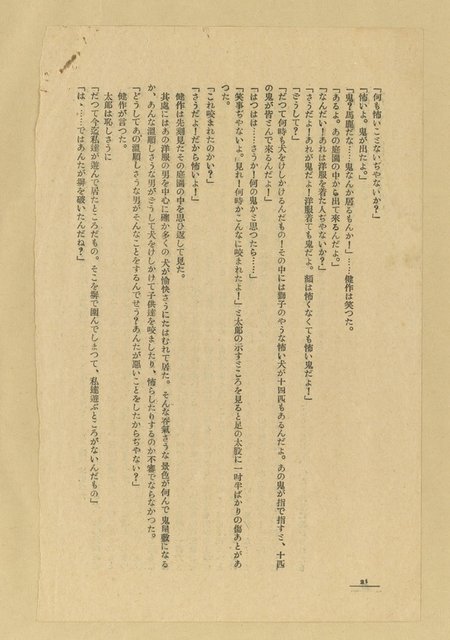 「何も怖いことないぢやないか？」
「怖いよ。鬼が出たよ。」
「鬼？馬鹿だな……鬼なんか居るもんか！」……健作は笑つた。
「あるよ。あの庭園の中から出て來るんだよ。」
「なんだい！あれは洋服を着た人ぢやないか？」
「さうだよ！あれが鬼だよ！洋服着ても鬼だよ。顔は怖くなくても怖い鬼だよ！」
「どうして？」
「だつて何時も犬をけしかけるんだもの！その中には獅子のやうな怖い犬が十四匹もあるんだよ。あの鬼が指で指すと、十四
の鬼が皆とんで來るんだよ！」
「はつはは……さうか！何の鬼かと思つたら……」
「笑事ぢやないよ。見れ！何時かこんなに咬まれたよ！」と太郎の示すところを見ると足の太股に一吋半ばかりの傷あとがあ
つた。
「これ咬まれたのかい？」
「さうだよ！だから怖いよ！」
健作は先刻見たその庭園の中を思ひ返して見た。
其處にはあの洋服の男を中心に確か多くの犬が愉快さうにたはむれて居た。そんな呑氣さうな景色が何んで鬼屋敷になる
か、あんな溫順しさうな男がどうして犬をけしかけて子供達を咬ましたり、怖らしたりするのか不審でならなかつた。
「どうしてあの溫順しさうな男がそんなことをするんでせう？あんたが惡いことをしたからぢやない？」
健作が言つた。
太郎は恥しさうに
「だつて今迄私達が遊んで居たところだもの。そこを塀で圍んでしまつて、私達遊ぶところがないんだもの」
「は、……ではあんたが塀を破いたんだね？」
21